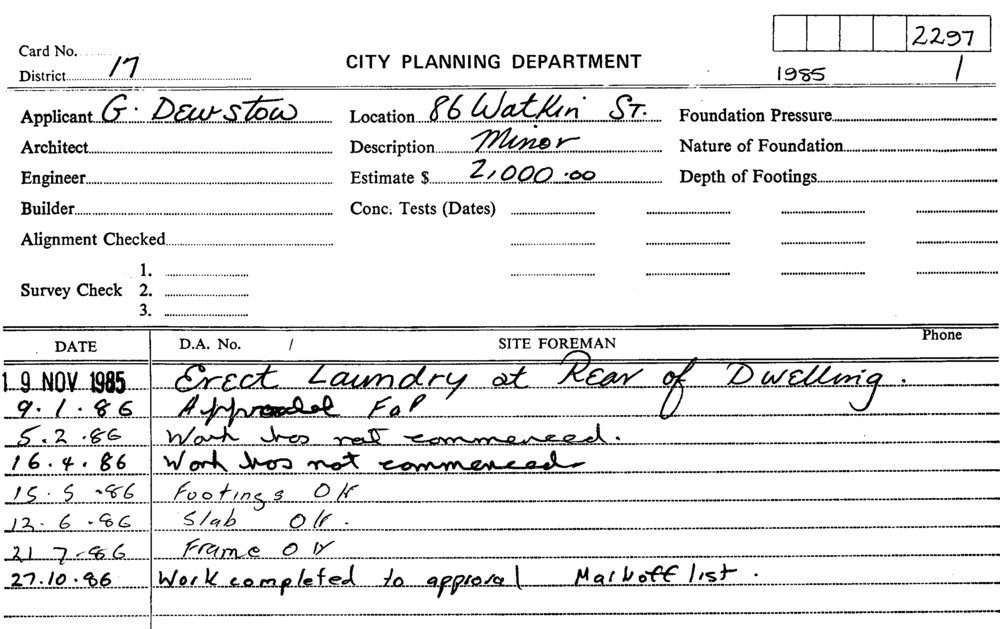 2297
Card No.
District 17
CITY PLANNING DEPARTMENT
1985 1
Applicant G. Dewstow Location 86 Watkin St. Foundation Pressure
Architect Description Minor Nature of Foundation
Engineer Estimate $ 2,000.00 Depth of Footings
Builder Conc. Tests (Dates)
Alignment Checked
1.
Survey Check 2.
3.
DATE D.A. No. / SITE FOREMAN Phone
19 NOV 1985 Erect Laundry at Rear of Dwelling.
9.1.86 FoP
5.2.86 Work has not commenced.
16.4.86 Work has not commenced
15.5.86 Footings OK
12.6.86 Slab OK.
21 7.86 Frame OK
27.10.86 Work completed to approval Mark off list.